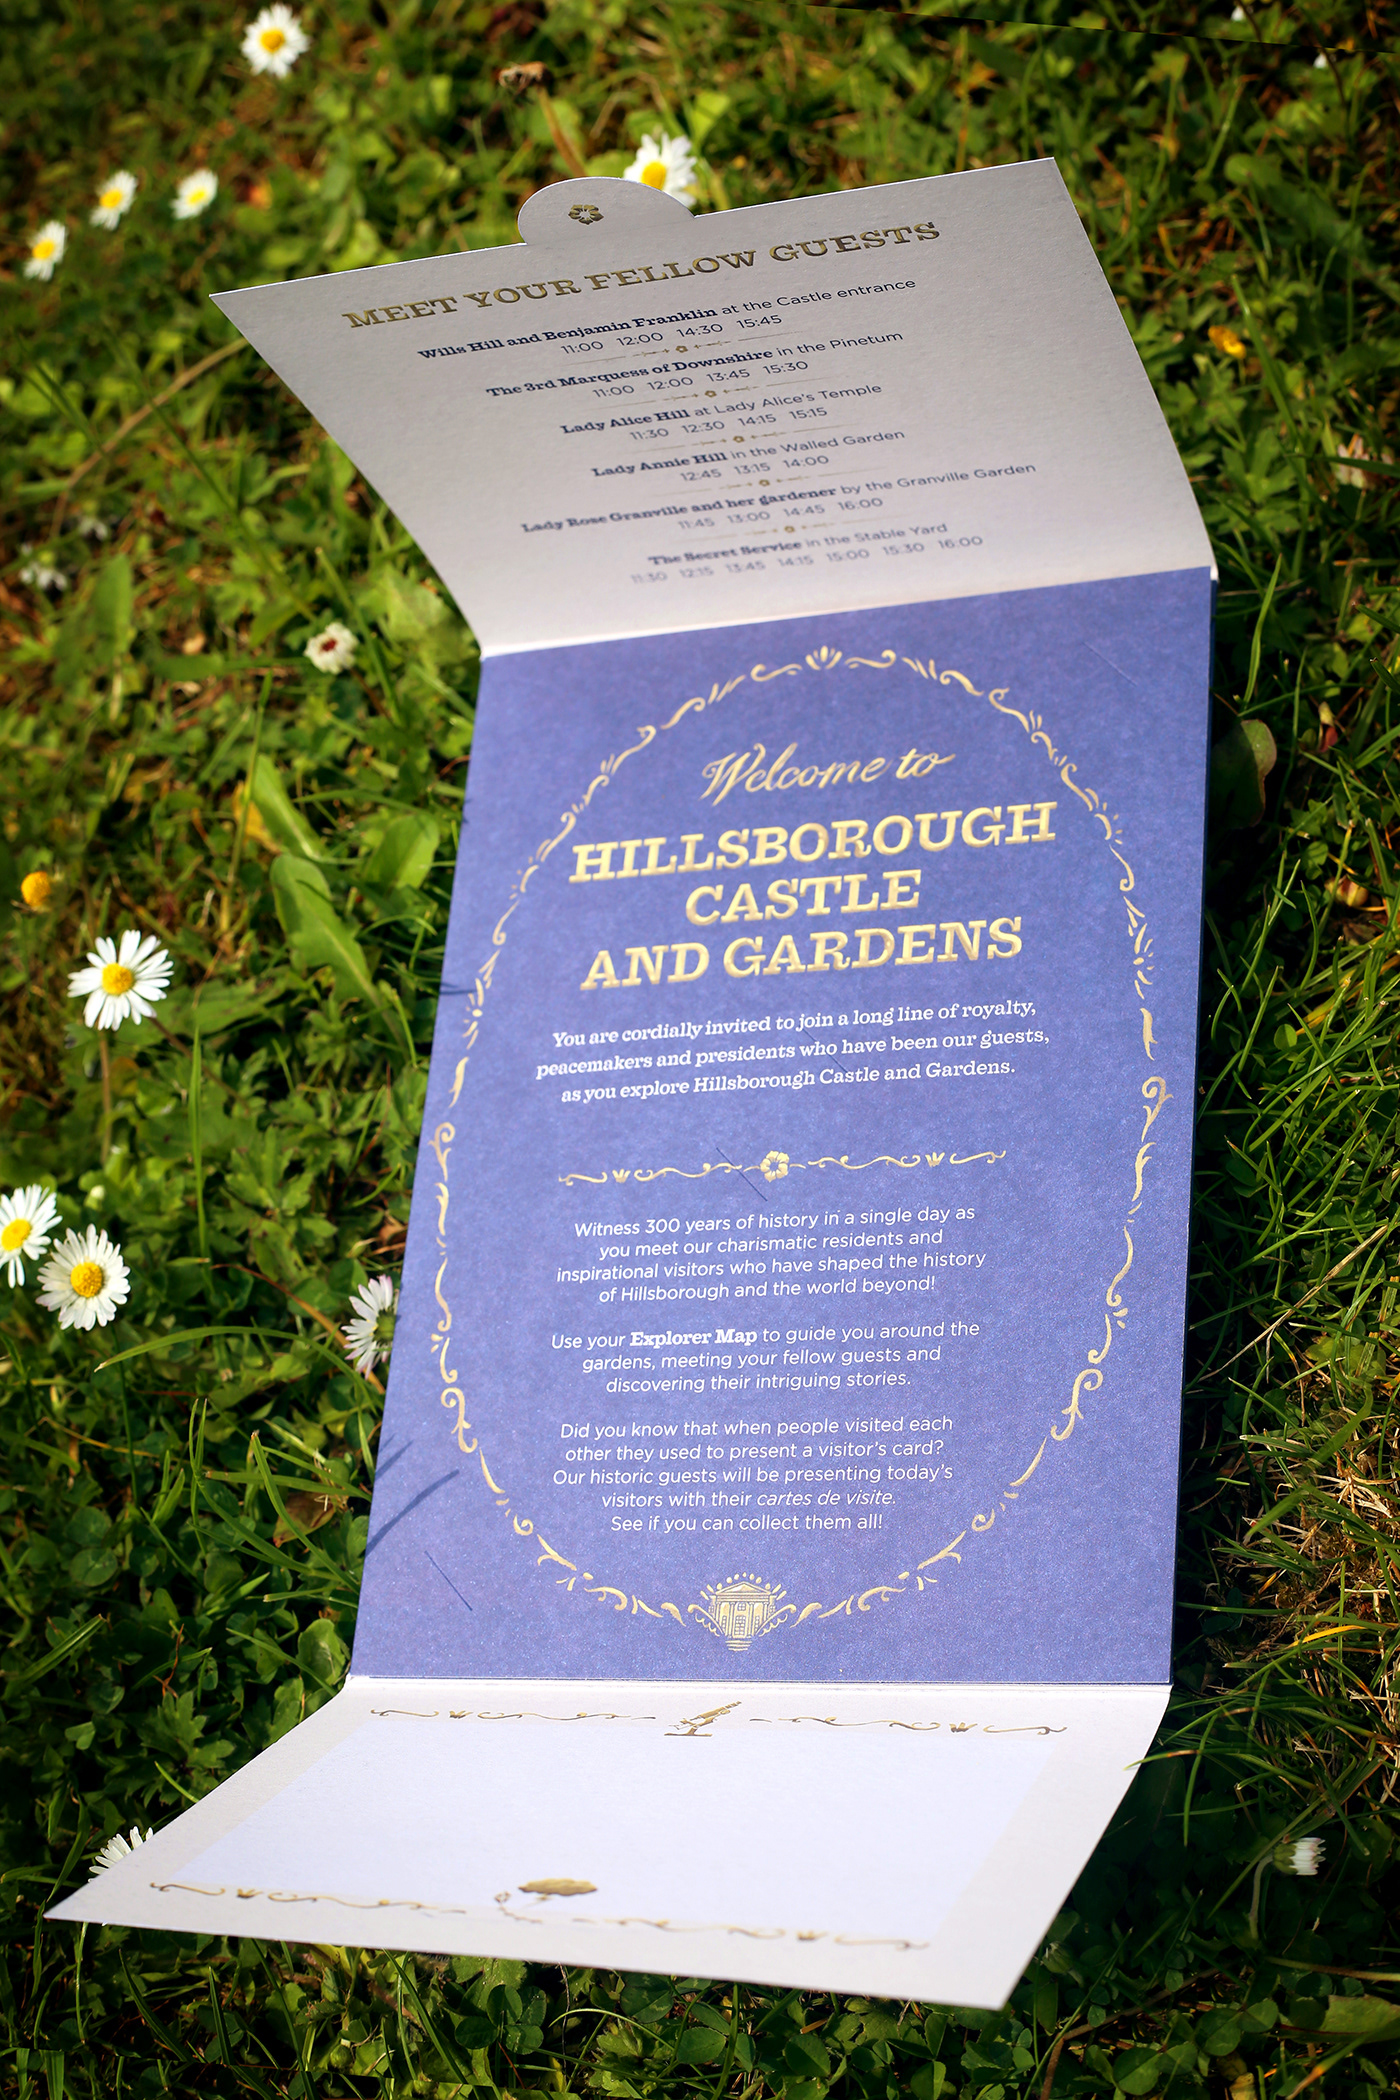 MEET YOUR FELLOW GUESTS
Wills Hill and Benjamin Franklin at the Castle entrance
11:00 12:00 14:30 15:45
The 3rd Marquess of Downshire in the Pinetum
11:00 12:00 13:45 15:30
Lady Alice Hill at Lady Alice's Temple
11:30 12:30 14:15 15:15
Lady Annie Hill in the Walled Garden
12:45 13:15 14:00
Lady Rose Granville and her gardener by the Granville Garden
11:45 13:00 14:45 16:00
The Secret Service in the Stable Yard
11:30 12:15 13:45 14:15 15:00 15:30 16:00
Welcome to
HILLSBOROUGH
CASTLE
AND GARDENS
You are cordially invited to join a long line of royalty,
peacemakers and presidents who have been our guests,
as you explore Hillsborough Castle and Gardens.
Witness 300 years of history in a single day as
you meet our charismatic residents and
inspirational visitors who have shaped the history
of Hillsborough and the world beyond!
Use your Explorer Map to guide you around the
gardens, meeting your fellow guests and
discovering their intriguing stories.
Did you know that when people visited each
other they used to present a visitor's card?
Our historic guests will be presenting today's
visitors with their cartes de visite.
See if you can collect them all!